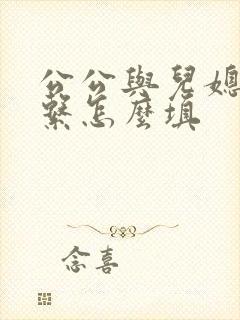 公公與兒媳
繫怎麼填
念喜